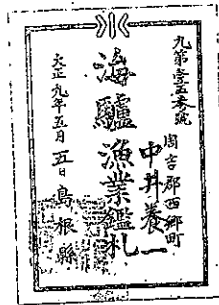 九第壹五壹號
周吉郡西郷町
中井養一
海驢漁業鑑札
大正九年五月五日
島根縣